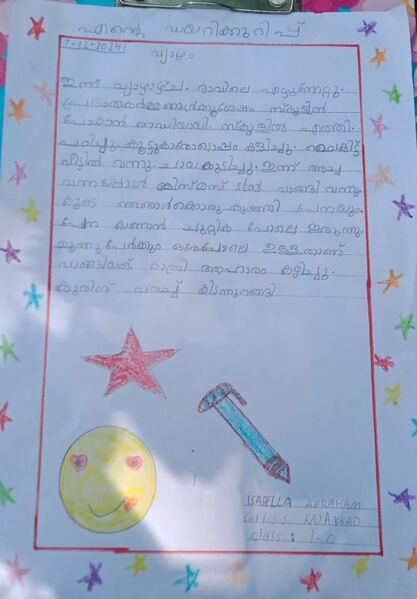 എന്റെ ഡയറിക്കുറിപ്പ്
7-12-2024
വ്യാഴം
ഇന്ന് വ്യാഴാഴ്ച. രാവിലെ എഴുന്നേറ്റു.
പ്രഭാതകർമ്മങ്ങൾക്കുശേഷം സ്കൂളിൽ
പോകാൻ റെഡിയായി. സ്കൂളിൽ എത്തി.
പഠിച്ചു. കൂട്ടുകാരോടൊപ്പം കളിച്ചു. വൈകിട്ട്
വീട്ടിൽ വന്നു. ചായ കുടിച്ചു. ഇന്ന് അച്ച
വന്നപ്പോൾ ക്രിസ്മസ് star വാങ്ങി വന്നു.
കൂടെ ഞങ്ങൾക്കൊരു കുഞ്ഞി പേനയും.
പേന കാണാൻ ചുറ്റിക പോലെ ഇരുന്നു.
മൂന്നുപേർക്കും ഒരുപോലെ ഉള്ളതാണ്
വാങ്ങിയത്. രാത്രി ആഹാരം കഴിച്ചു.
കുരിശ് വരച്ച് കിടന്നുറങ്ങി
ISABELLA ABRAHAM
G.H.S.S RAJAKKAD
class: 1.C